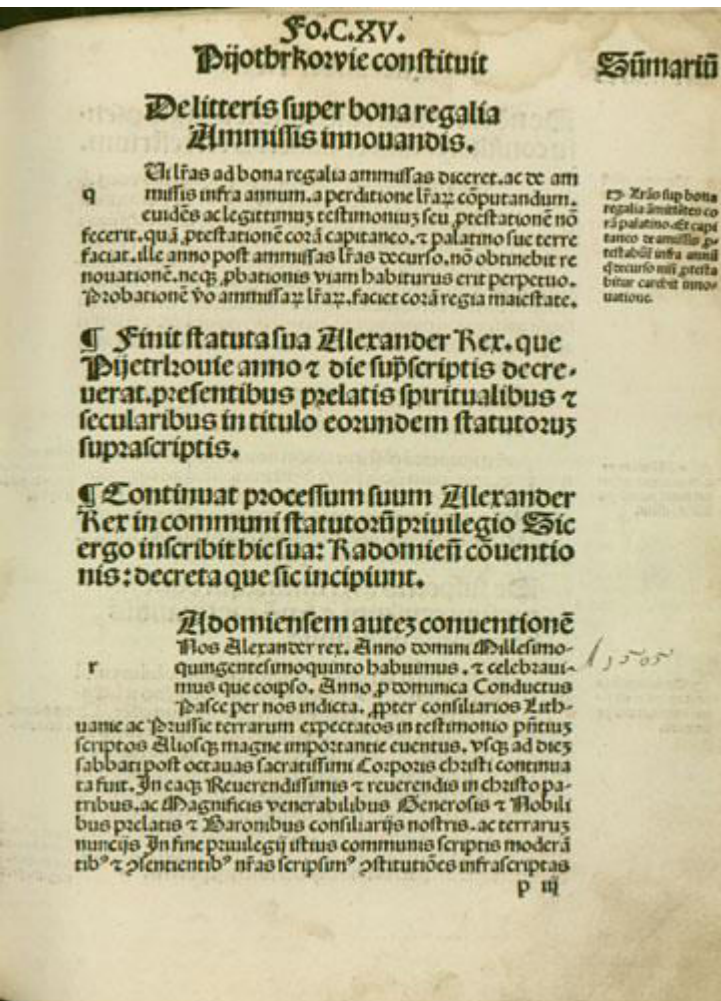 Fo.C.XV.
Pijotbrkovie constituit
Sūmariū
De litteris super bona regalia
Ammissis innouandis.
Ui lr̄as ad bona regalia ammissas diceret. ac de am
q missis infra annum. a perditione lr̄aꝝ cōputandum.
euidēs ac legittimuȝ testimoniuȝ seu ꝓtestationē nō
fecerit. quā ꝓtestationē corā capitaneo. ⁊ palatino sue terre
faciat. ille anno post ammissas lr̄as decurso. nō obtinebit re
nouationē. neqꝫ ꝓbationis viam habiturus erit perpetuo.
Probationē v̄o ammissaꝝ lr̄aꝝ. faciet corā regia maiestate.
sup bona
regalia āmittēs co
rā palatino. Et capi
taneo de amissis ꝓ
infra annū
decurso nisi ꝓtesta
bitur carebit inno-
uatione.
¶ Finit statuta sua Alexander Rex. que
Pijetrkouie anno ⁊ die sup̄scriptis decre-
uerat. presentibus prelatis spiritualibus ⁊
secularibus in titulo eorundem statutoruȝ
suprascriptis.
¶ Continuat processum suum Alexander
Rex in communi statutorū priuilegio Sic
ergo inscribit hic sua: Radomien̄ cōuentio
nis: decreta que sic incipiunt.
Adomiensem auteȝ conuentionē
Nos Alexander rex. Anno domini Millesimo-
r quingentesimoquinto habuimus. ⁊ celebraui-
mus que eoipso. Anno ꝓ dominica Conductus
Pasce per nos indicta. ꝓpter consiliarios Lith-
uanie ac Prussie terrarum expectatos in testimonio pn̄tiuȝ
scriptos Aliosqꝫ magne importantie euentus. vsqꝫ ad dieȝ
sabbati post octauas sacratissimi Corporis christi continua
ta fuit. In eaqꝫ Reuerendissimis ⁊ reuerendis in christo pa-
tribus. ac Magnificis venerabilibus Generosis ⁊ Nobili
bus prelatis ⁊ Baronibus consiliarijs nostris. ac terraruȝ
nuncijs In fine priuilegij istius communis scriptis moderā
tibꝰ ⁊ ꝯsentientibꝰ nr̄as scripsimꝰ ꝯstitutiōes infrascriptas
1505
p iij